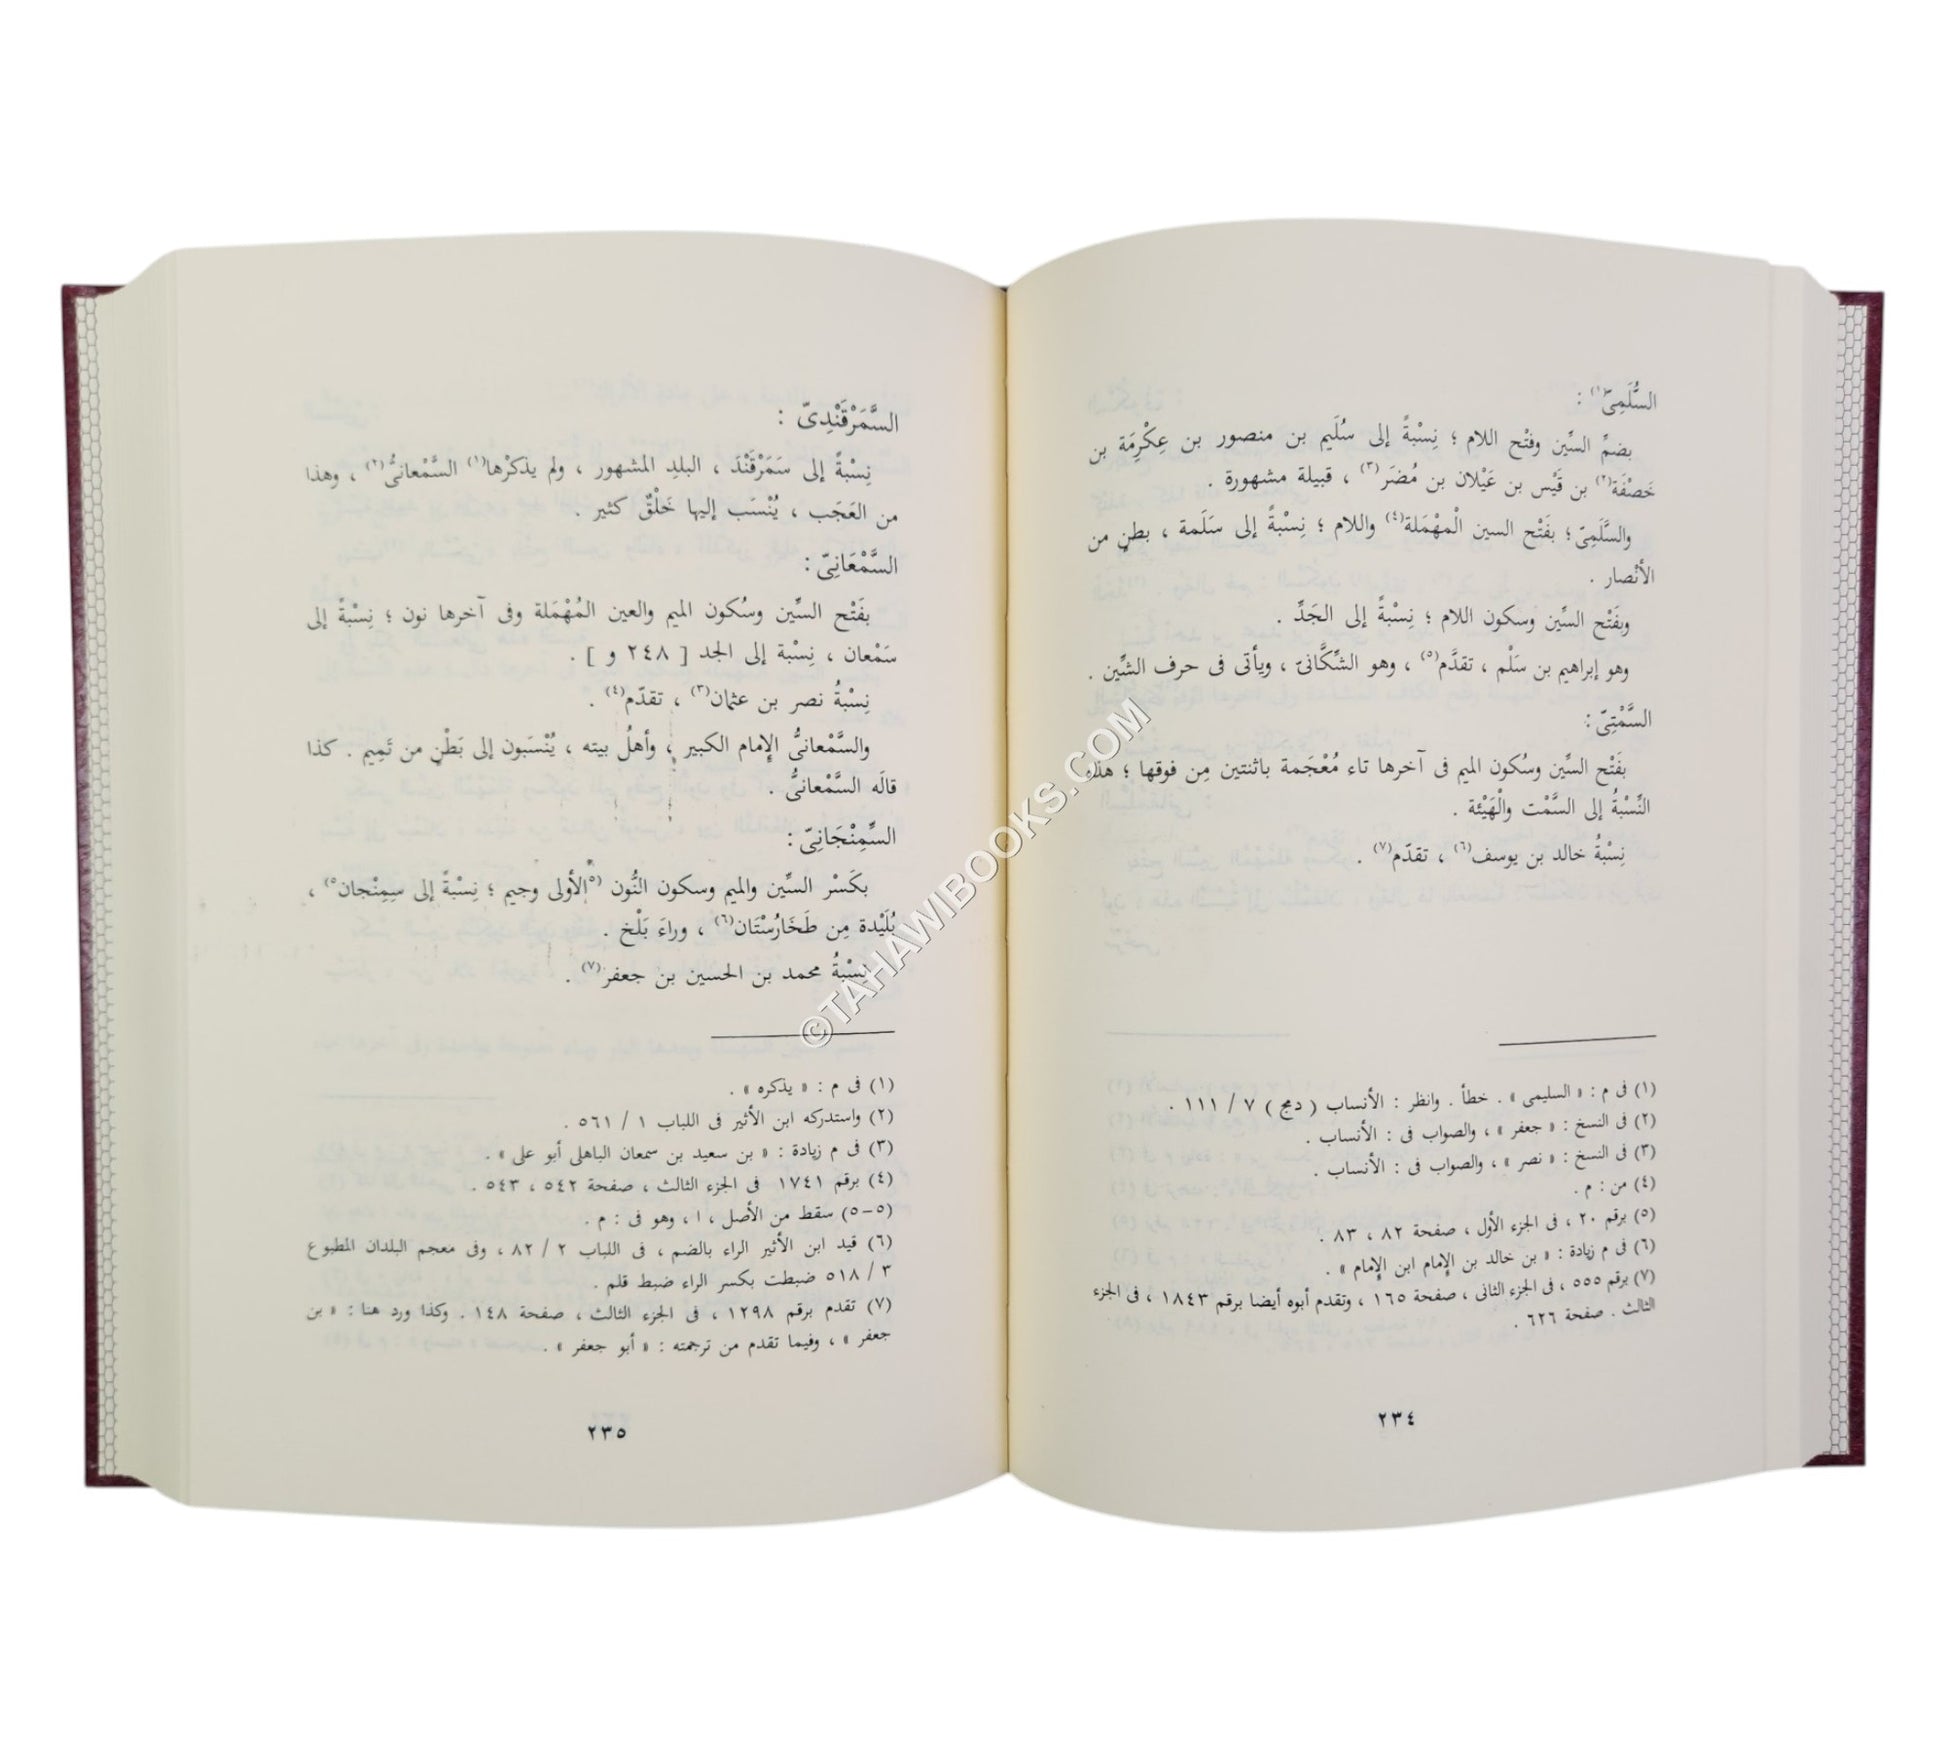 السُّلَمِىّ(١) :
بضمِّ السِّين وفتْح اللام ؛ نِسْبةً إلى سُلَيم بن منصور بن عِكْرِمَة بن
خَصْفَة(٢) بن قَيْس بن عَيْلان بن مُضَر(٣) ، قبيلة مشهورة .
والسَّلَمِىّ ؛ بفَتْح السين الْمهْمَلة(٤) واللام ؛ نِسْبةً إلى سَلَمة ، بطنٍ من
الأنْصار .
وبفَتْح السِّين وسكون اللام ؛ نِسْبةً إلى الجَدِّ .
وهو إبراهيم بن سَلْم ، تقدَّم(٥) ، وهو الشِّكَّانىّ ، ويأتى فى حرف الشِّين .
السَّمْتِىّ :
بفَتْح السِّين وسُكون الميم فى آخرها تاء مُعْجَمة باثنتين مِن فوقها ؛ هذه
النِّسْبةُ إلى السَّمْت والْهَيْئة .
نِسْبةُ خالد بن يوسف(٦) ، تقدّم(٧) .
(١) فى م : « السليمى » . خطأ . وانظر : الأنساب ( دمج ) ٧ / ١١١ .
(٢) فى النسخ : « جعفر » ، والصواب فى : الأنساب .
(٣) فى النسخ : « نصر » ، والصواب فى : الأنساب .
(٤) من : م .
(٥) برقم ٢٠ ، فى الجزء الأول ، صفحة ٨٢ ، ٨٣ .
(٦) فى م زيادة : « بن خالد بن الإمام ابن الإمام » .
(٧) برقم ٥٥٥ ، فى الجزء الثانى ، صفحة ١٦٥ ، وتقدم أبوه أيضا برقم ١٨٤٣ ، فى الجزء
الثالث . صفحة ٦٢٦ .
٢٣٤
السَّمَرْقَنْدِىّ :
نِسْبةً إلى سَمَرْقَنْدَ ، البلدِ المشهور ، ولم يذكرْها(١) السَّمْعانىُّ(٢) ، وهذا
من العَجَب ، يُنْسَب إليها خَلْقٌ كثير .
السَّمْعَانِىّ :
بفَتْح السِّين وسُكون الميم والعين المُهْمَلة وفى آخرها نون ؛ نِسْبةً إلى
سَمْعان ، نِسْبة إلى الجد [ ٢٤٨ و ] .
نِسْبةُ نصر بن عثمان(٣) ، تقدّم(٤) .
والسَّمْعانىُّ الإمام الكبير ، وأهلُ بيته ، يُنْسَبون إلى بَطْنٍ من تَمِيم . كذا
قالَه السَّمْعانىُّ .
السِّمِنْجَانِىّ :
بكَسْر السِّين والميم وسكون النُّون (٥الأولى وجيم ؛ نِسْبةً إلى سِمِنْجان٥) ،
بُلَيْدة مِن طَخَارُسْتَان(٦) ، وراءَ بَلْخ .
نِسْبةُ محمد بن الحسين بن جعفر(٧) .
(١) فى م : « يذكره » .
(٢) واستدركه ابن الأثير فى اللباب ١ / ٥٦١ .
(٣) فى م زيادة : « بن سعيد بن سمعان الباهلى أبو على » .
(٤) برقم ١٧٤١ فى الجزء الثالث ، صفحة ٥٤٢ ، ٥٤٣ .
(٥-٥) سقط من الأصل ، ا ، وهو فى : م .
(٦) قيد ابن الأثير الراء بالضم ، فى اللباب ٢ / ٨٢ ، وفى معجم البلدان المطبوع
٣ / ٥١٨ ضبطت بكسر الراء ضبط قلم .
(٧) تقدم برقم ١٢٩٨ ، فى الجزء الثالث ، صفحة ١٤٨ . وكذا ورد هنا : « بن
جعفر » ، وفيما تقدم من ترجمته : « أبو جعفر » .
٢٣٥
©TAHAWIBOOKS.COM